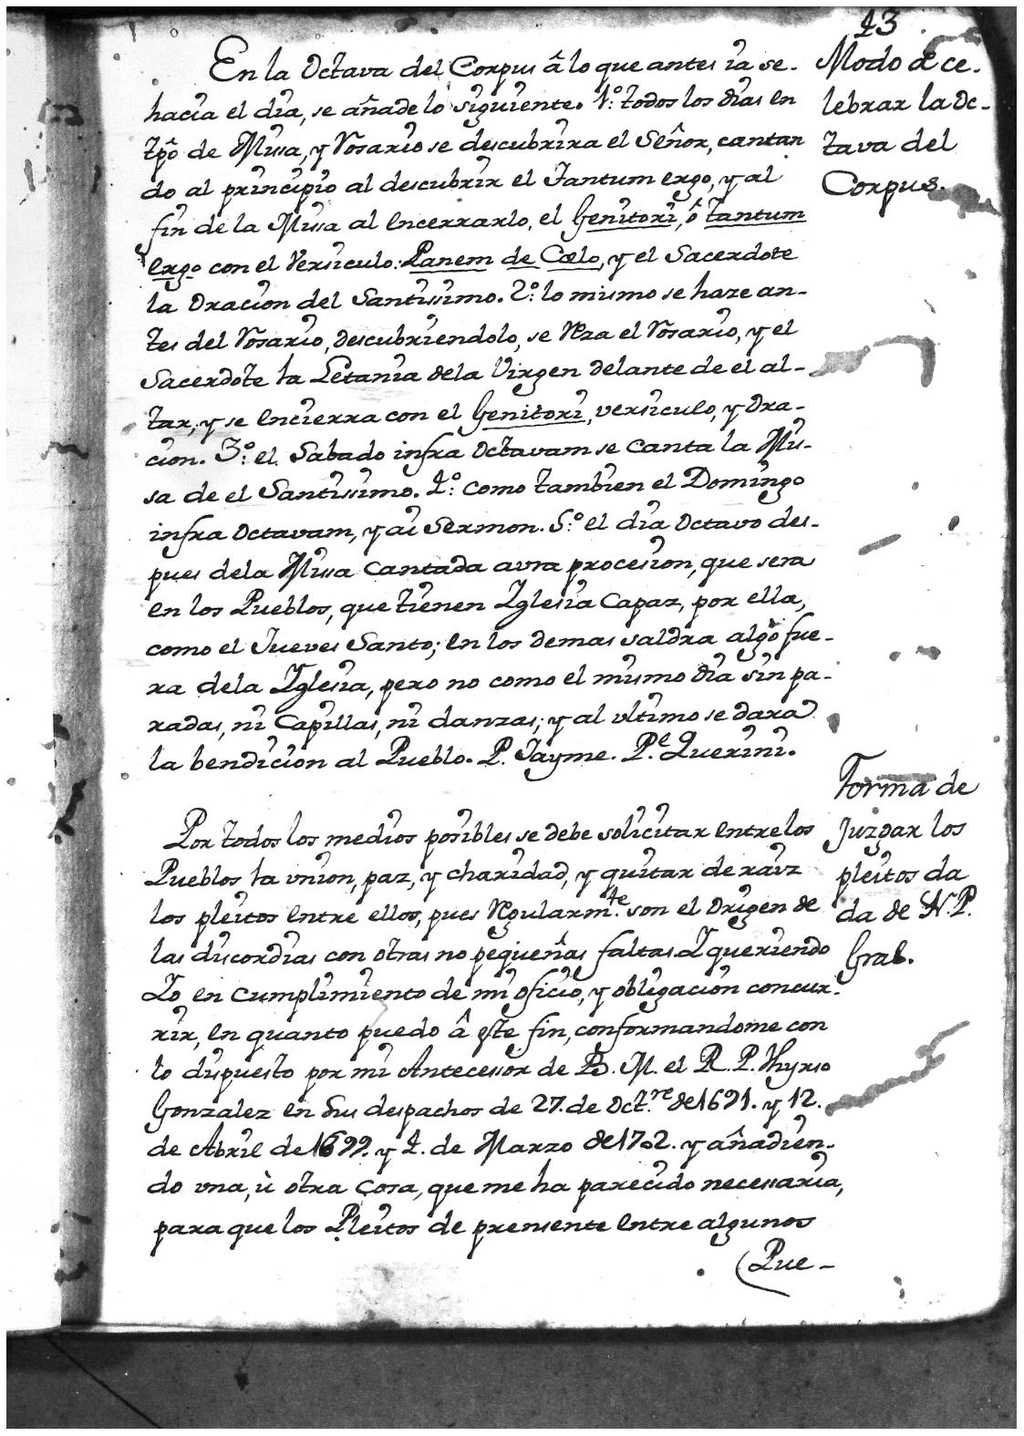 43
Modo de ce-
lebrar la Oc-
tava del
Corpus.
En la Octava del Corpus â lo que antes ia se-
hacia el dia, se añade lo siguiente. 1.º todos los dias en
tpô de Missa, y Rosario se descubrira el Señor, cantan
do al principio al descubrir el Tantum ergo, y al
fin de la Missa al encerrarlo, el Genitori, ô tantum
ergo con el Versiculo: Panem de Cœlo, y el Sacerdote
la Oracion del Santissimo. 2.º lo mismo se haze an-
tes del Rosario, descubriendolo, se Reza el Rosario, y el
Sacerdote la Letania dela Virgen delante de el al-
tar, y se encierra con el Genitori, versiculo, y Ora-
cion. 3.º el Sabado infra Octavam se canta la Mi-
sa de el Santissimo. 4.º como tambien el Domingo
infra Octavam, y ai Sermon. 5.º el dia Octavo des-
pues dela Missa Cantada avra procesion, que sera
en los Pueblos, que tienen Iglesia Capaz, por ella,
como el Jueves Santo; en los demas saldra algo fue-
ra dela Iglesia, pero no como el mismo dia sin pa-
radas, ni Capillas, ni danzas; y al ultimo se dara
la bendicion al Pueblo. P. Jayme. P.e Querini.
Forma de
Juzgar los
pleitos da
da de N. P.
Gral.
Por todos los medios posibles se debe solicitar entre los
Pueblos la vnion, paz, y charidad, y quitar de raiz
los pleitos entre ellos, pues Regularm.te son el Origen de
las discordias con otras no pequeñas faltas. I queriendo
Io en cumplimiento de mi oficio, y obligacion concur-
rir, en quanto puedo â este fin, conformandome con
lo dispuesto por mi Antecesor de B. M. el R. P. Thyrso
Gonzalez en sus despachos de 27. de Oct.re de 1691. y 12.
de Abril de 1699. y 4. de Marzo de 1702. y añadien-
do vna, ù otra cosa, que me ha parecido necessaria,
para que los Pleitos de presente entre algunos
Pue-